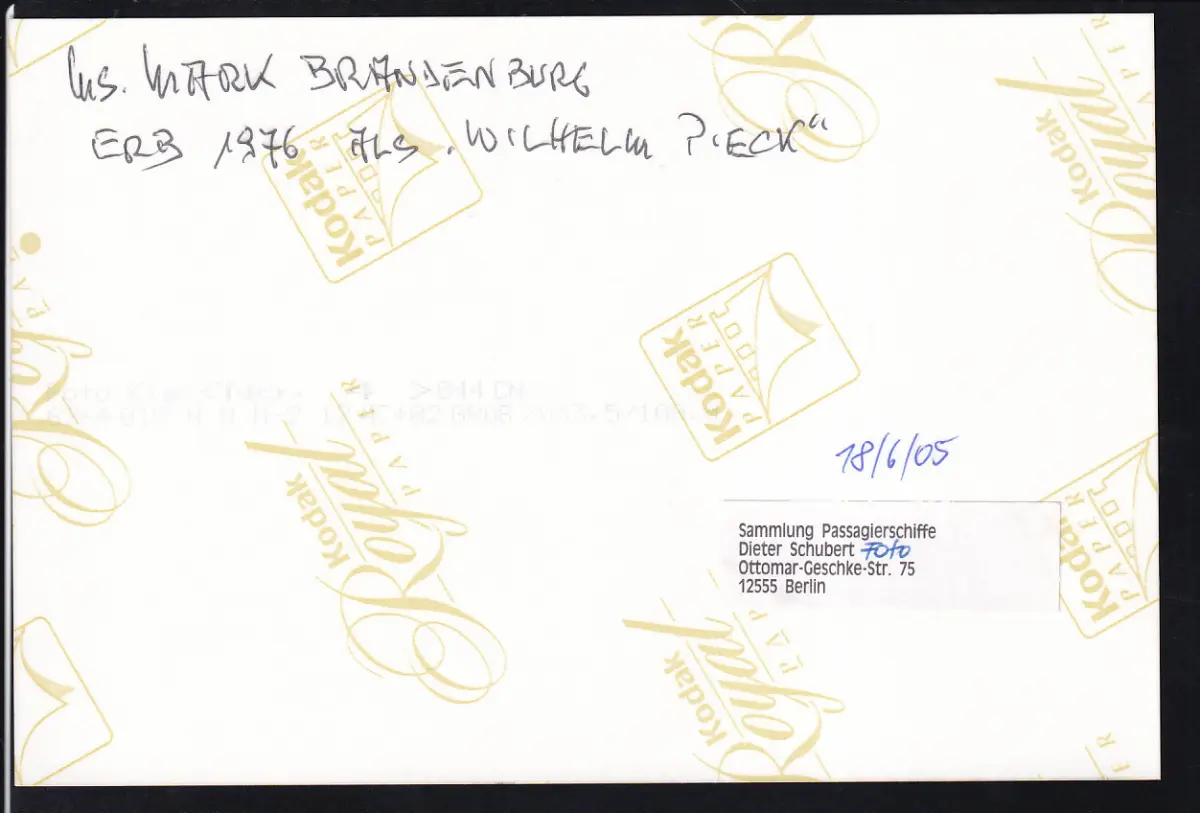 MS. MARK BRANDENBURG
ERB 1976 ALS „WILHELM PIECK“
Kodak
PAPER
Kodak
Royal
PAPER
Kodak
PAPER
Kodak
Royal
PAPER
18/6/05
Sammlung Passagierschiffe
Dieter Schubert Foto
Ottomar-Geschke-Str. 75
12555 Berlin
Kodak
PAPER
Kodak
Royal
PAPER